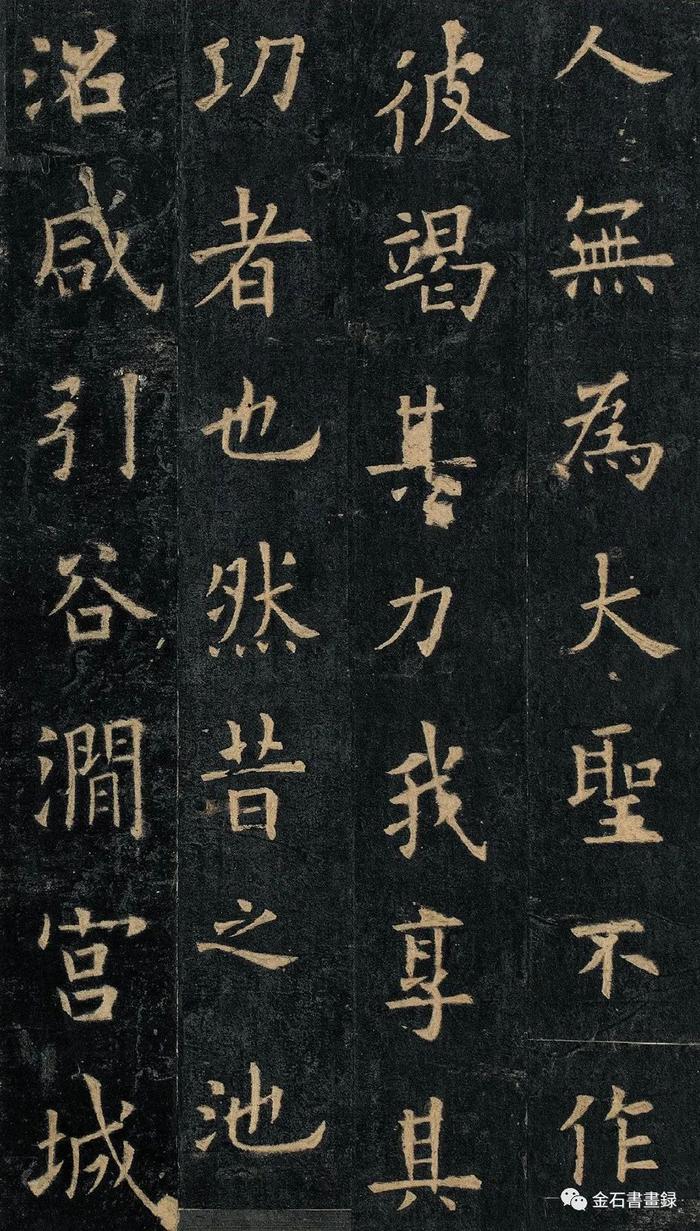 人無為大聖不作
彼竭其力我享其
功者也然昔之池
沼咸引谷澗宮城
金石書畫録